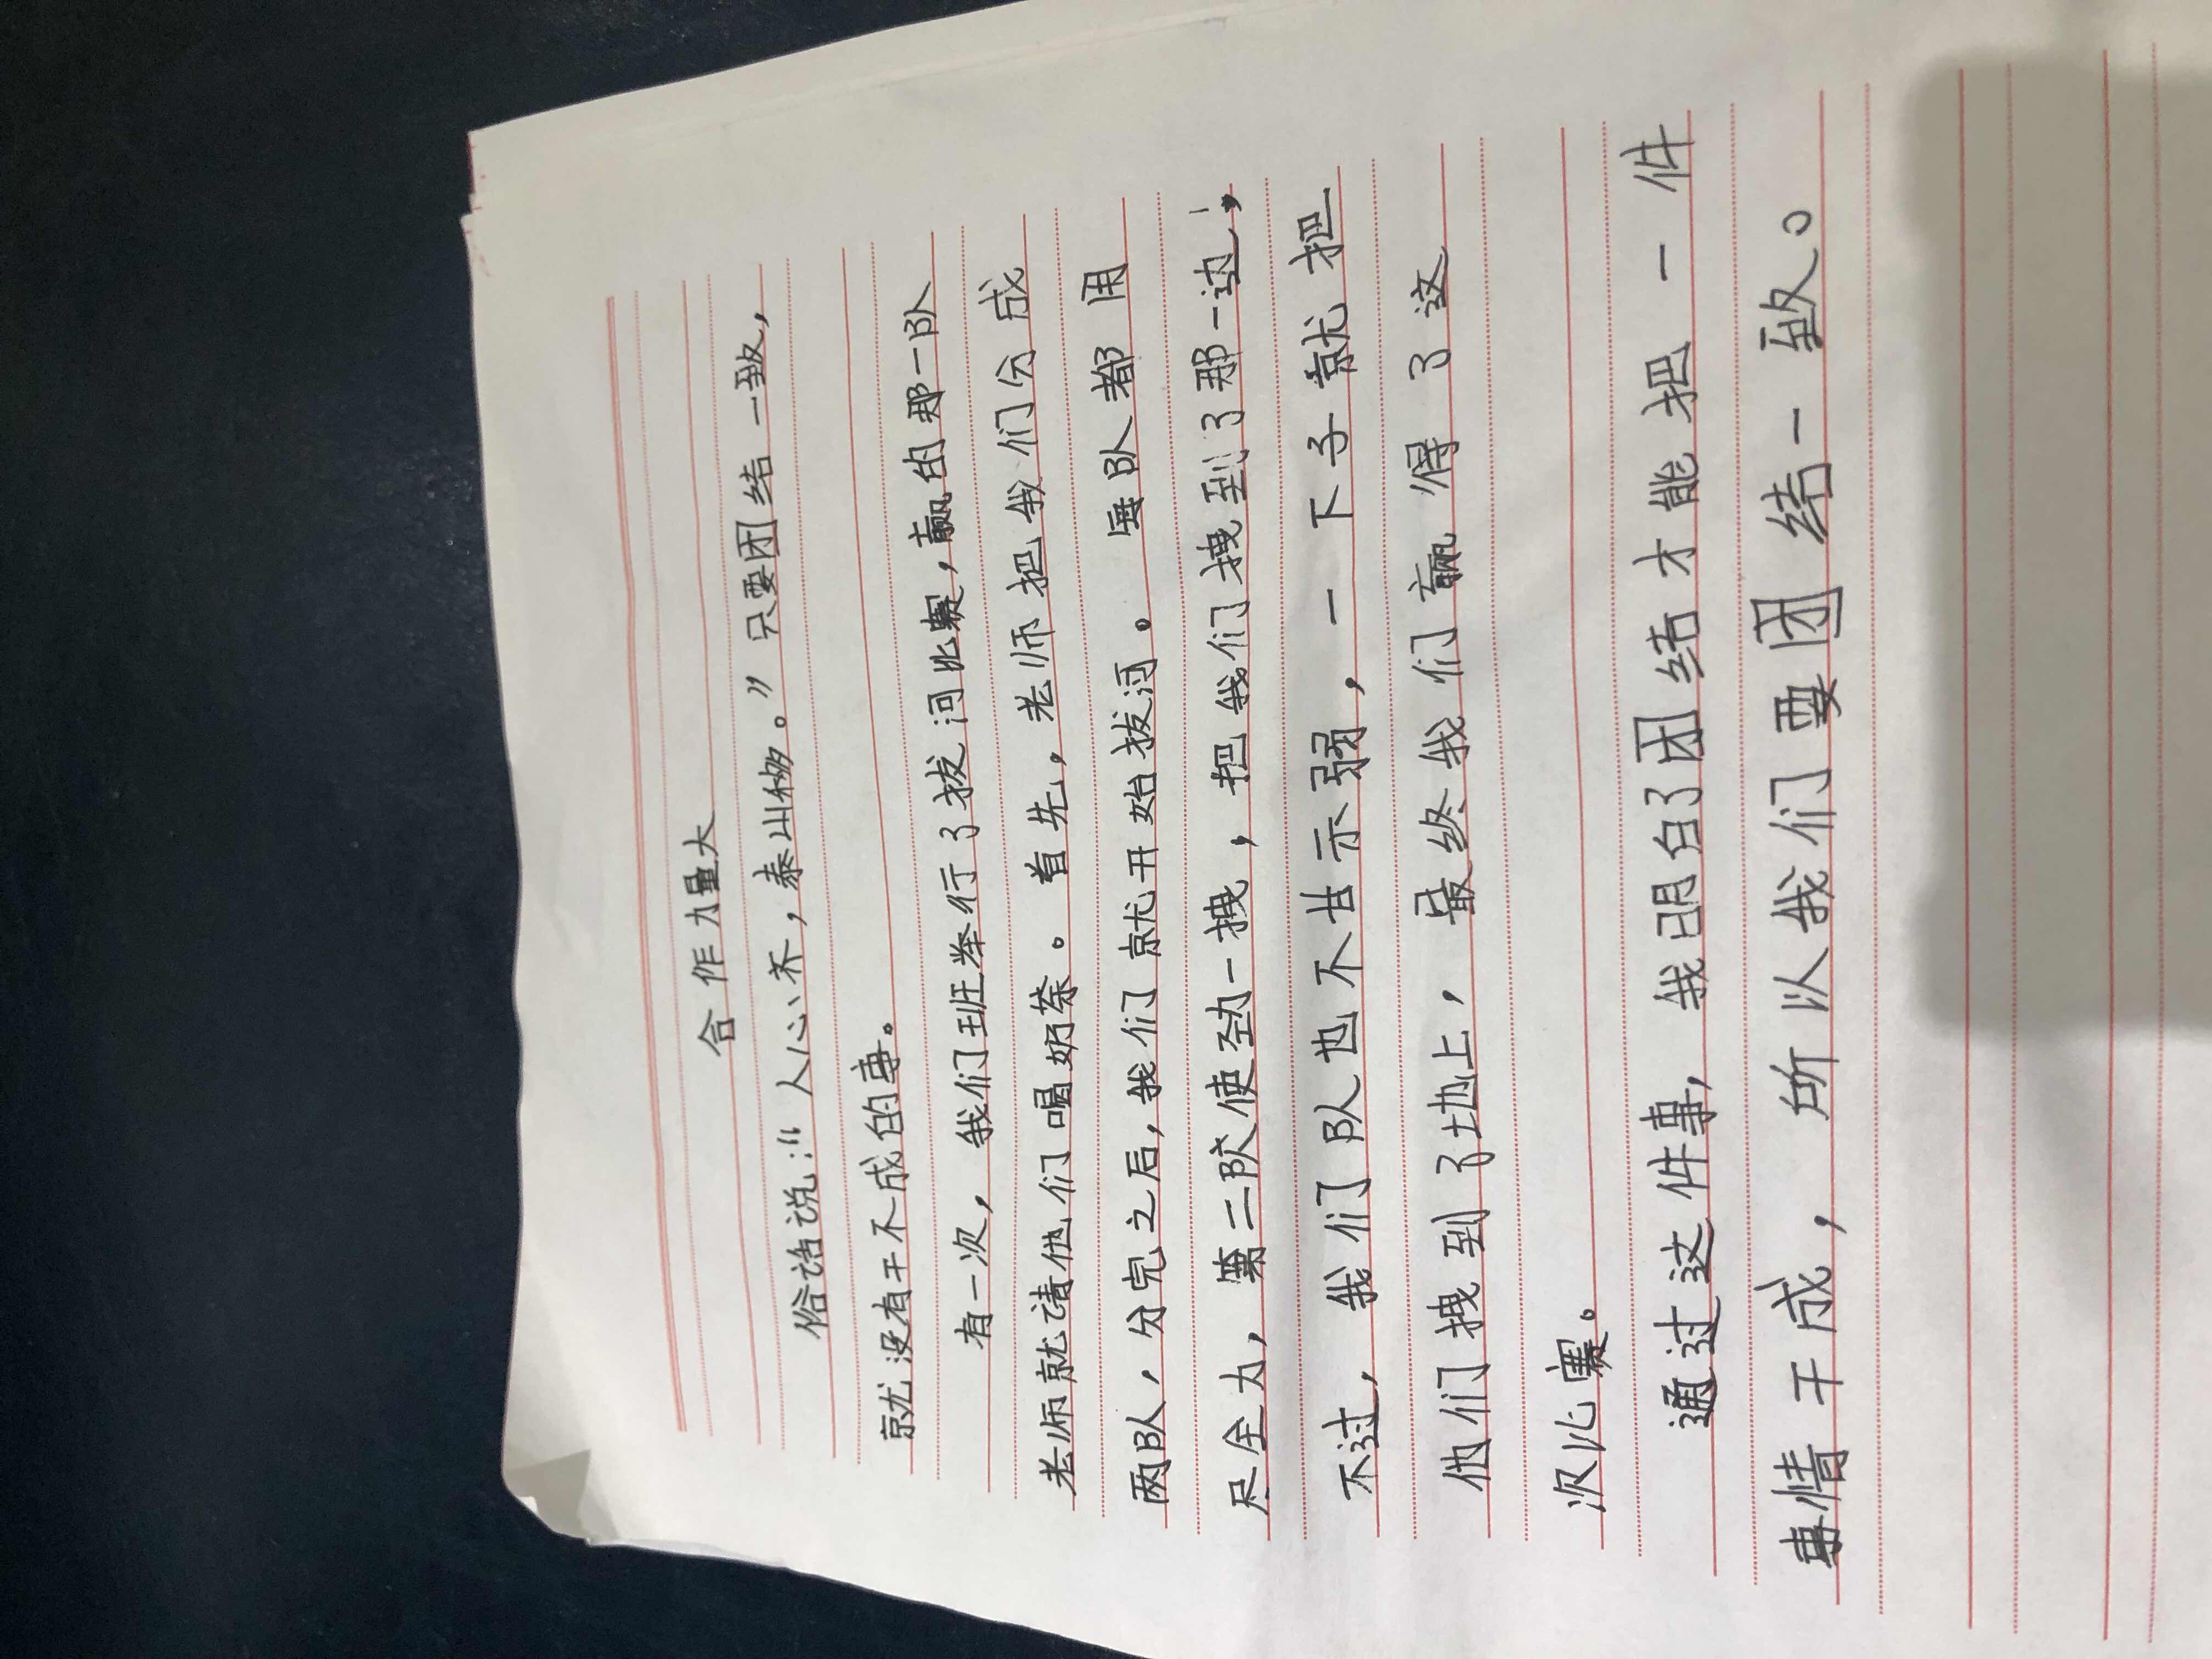 合作力量大
俗话说:"人心齐,泰山移。"只要团结一致,
就没有干不成的事。
有一次,我们班举行了拔河比赛,赢的那一队
老师就请他们喝奶茶。首先,老师把我们分成
两队,分完之后,我们就开始拔河。每队都用
尽全力,第二队使劲一拽,把我们拽到了那一边,
不过,我们队也不甘示弱,一下子就把
他们拽到了地上,最终我们赢得了这
次比赛。
通过这件事,我明白了团结才能把一件
事情干成,所以我们要团结一致。